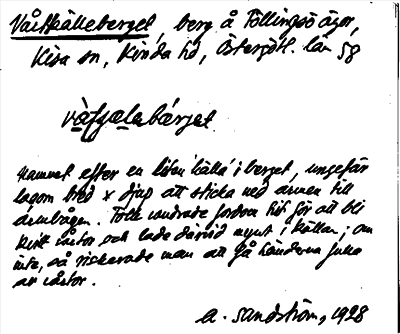 Vårtkälleberget, berg å Föllingsö ägor,
Kisa sn, Kinda hd, Östergötl. län 58
vàţçæla bárget
Namnet efter en liten 'källa' i berget, ungefär
lagom bred x djup att sticka ned armen till
armbågen. Folk vandrade fordom hit för att bli
kvitt vårtor och lade därvid mynt i källan; om
inte, så riskerade man att få händerna fulla
av vårtor.
A. Sandström, 1928